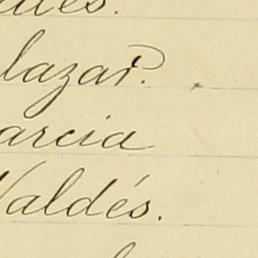 lazar.
arcia
Valdés.